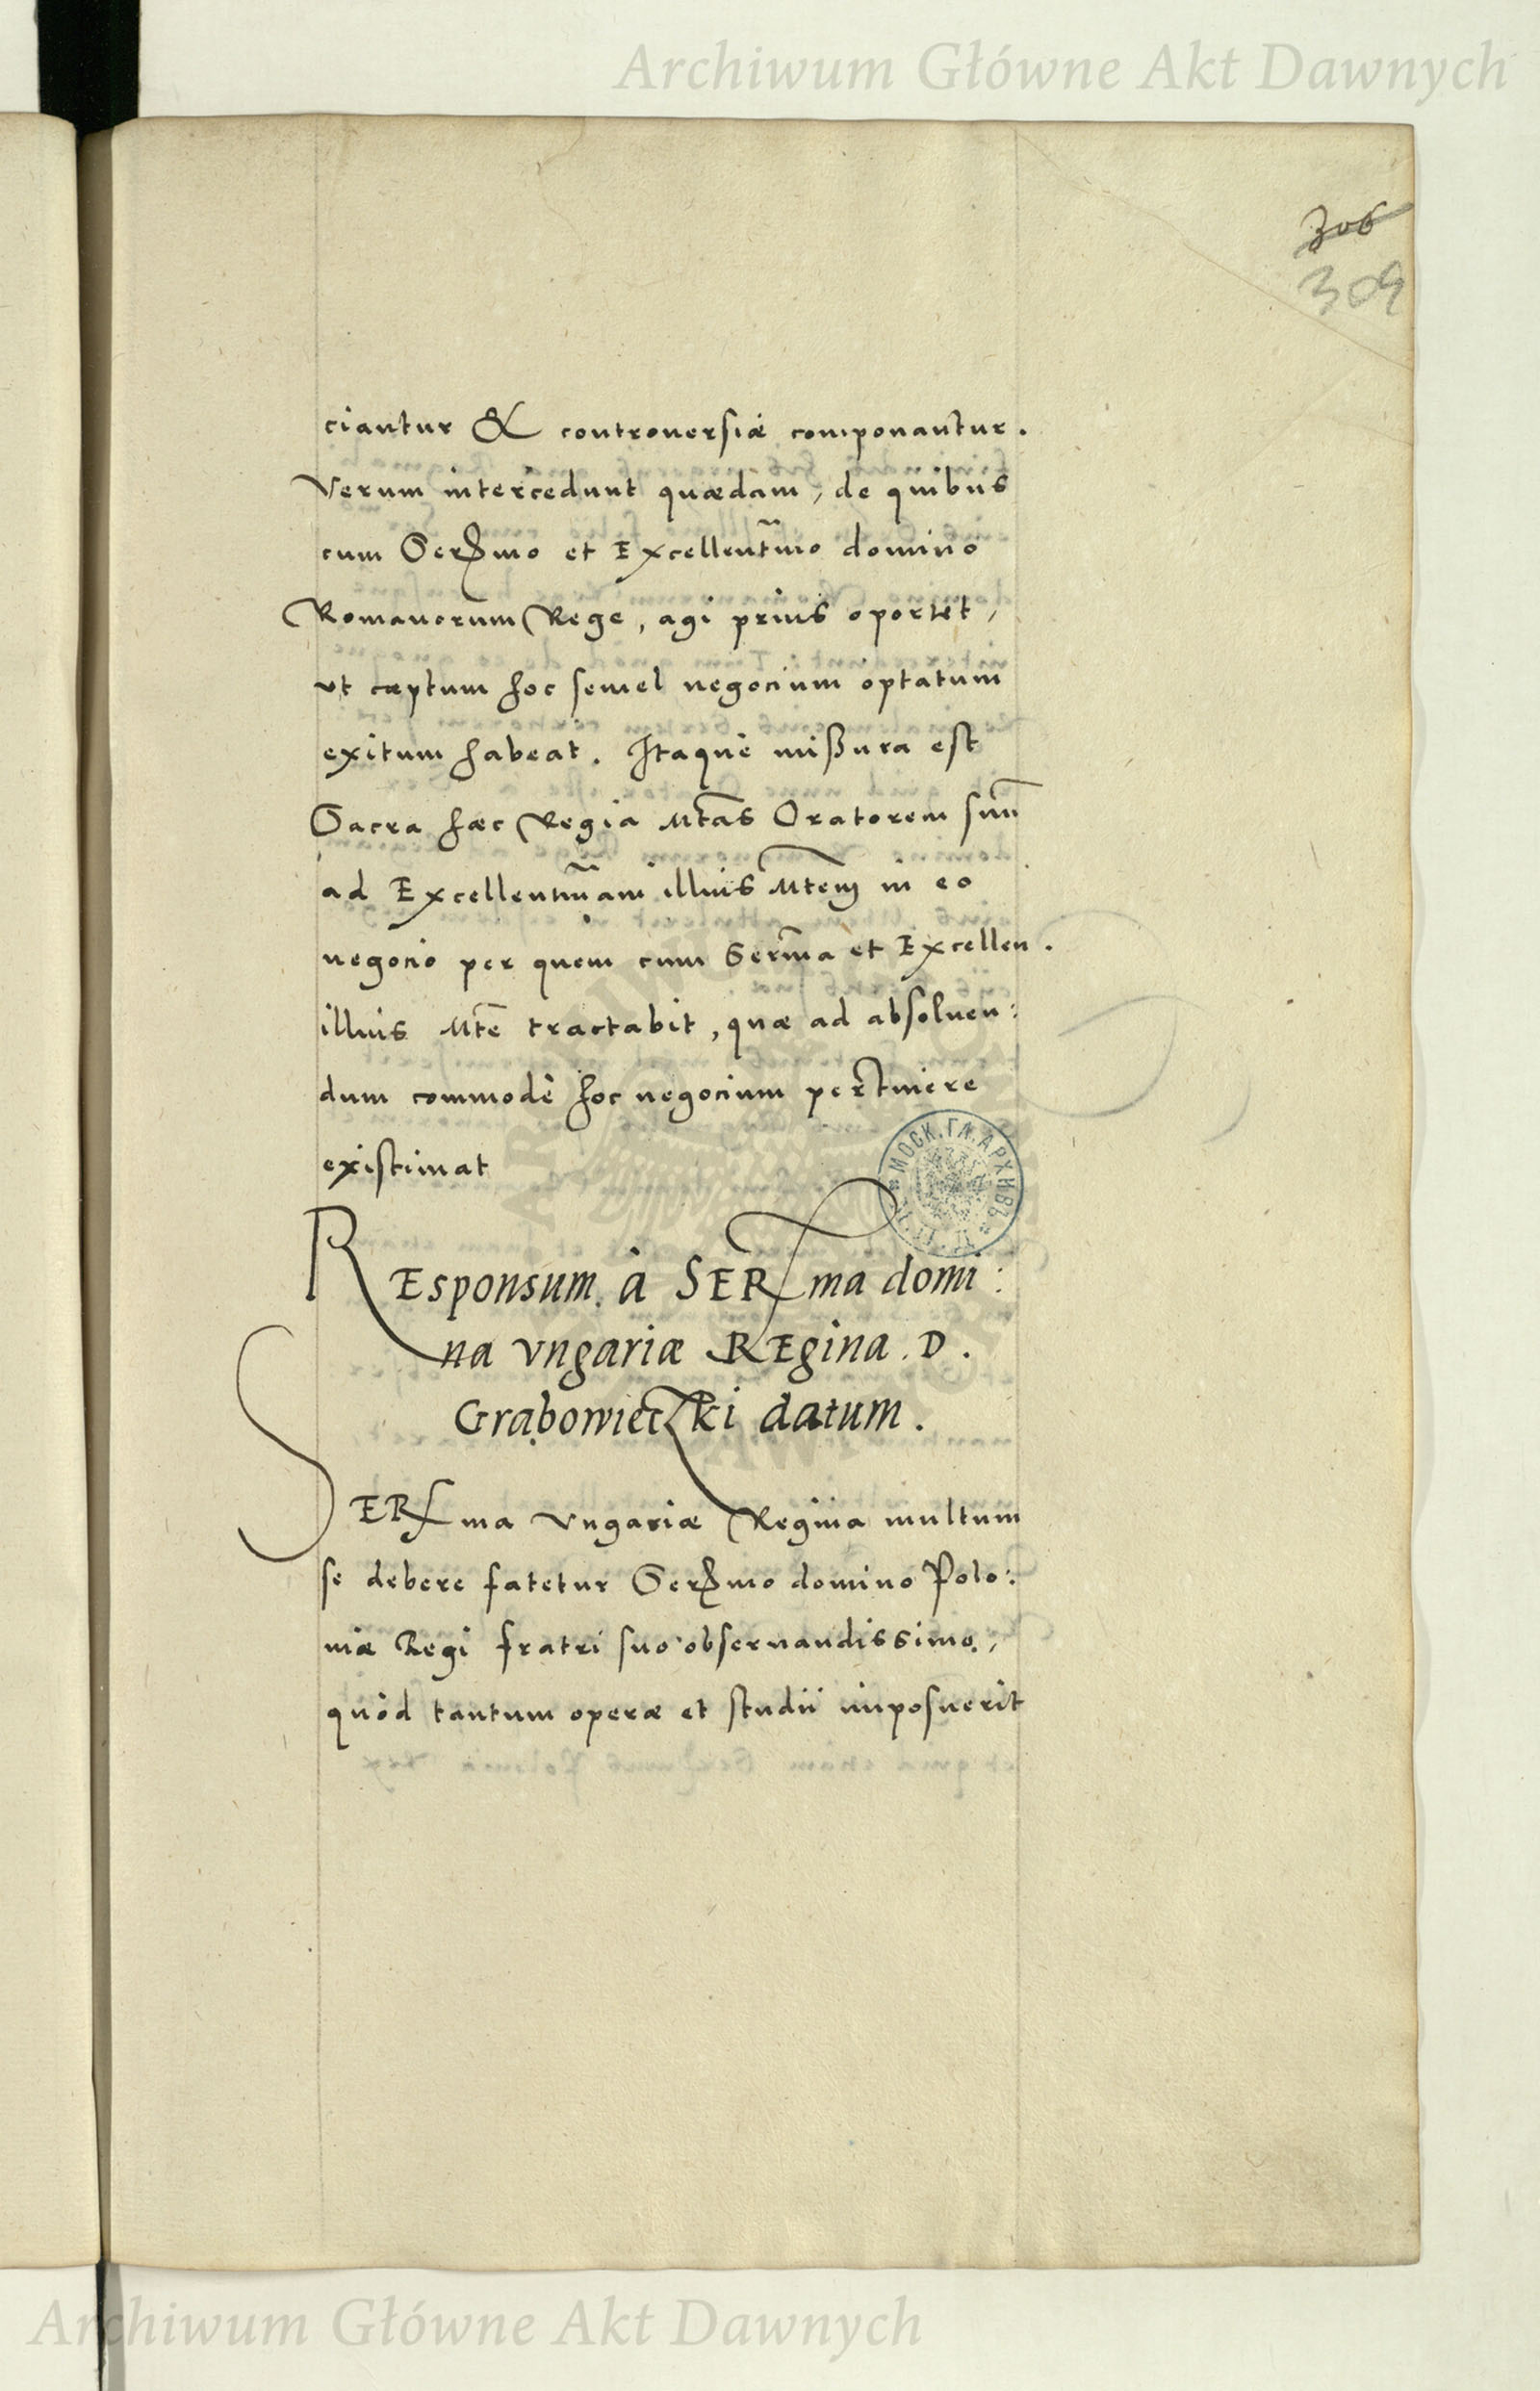 Archiwum Główne Akt Dawnych
306
309
ciantur & controuersiæ componantur.
Verum intercedunt quædam, de quibus
cum Serᵐo et Excellentm̃o domino
Romanorum Rege, agi prius oportet,
vt cæptum hoc semel negocium optatum
exitum habeat. Itaque mißura est
Sacra hæc Regia Mtãs Oratorem suũ
ad Excellentm̃am illius Mtem in eo
negocio per quem cum Serm̃a et Excellen.
illius Mtẽ tractabit, quæ ad absoluen:
dum commodè hoc negocium pertinere
existimat
REsponsum à SERma domi:
na vngariæ REgina D.
Grabowieczki datum.
SERma Vngariæ Regina multum
se debere fatetur Sermo domino Polo:
niæ Regi fratri suo obseruandissimo,
quòd tantum operæ et studii imposuerit
МОСК. ГЛ. АРХИВЪ
Archiwum Główne Akt Dawnych